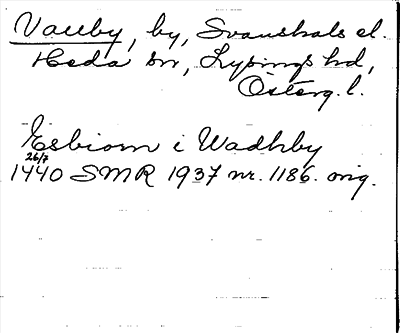 Vauby, by, Svanshals el.
Heda sn, Lysings hd,
Österg. l.
Esbiorn i Wadhby
26/7
1440 SMR 1937 nr. 1186. orig.